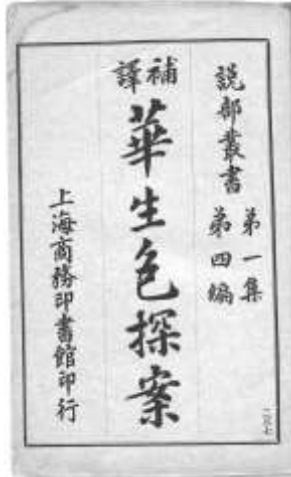 說部叢書 第一集
第四編
補譯
華生包探案
上海商務印書館印行